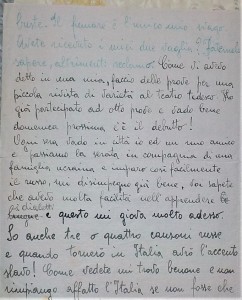 buste. Il fumare è l'unico mio svago
Avete ricevuto i miei due vaglia? Fatemelo
sapere, altrimenti reclamo. Come vi avevo
detto in una mia, faccio delle prove per una
piccola rivista di varietà al teatro tedesco. Ho
già partecipato ad otto prove e vado bene
domenica prossima c'è il debutto!
Ogni sera vado in città io ed un mio amico
e passiamo la serata in compagnia di una
famiglia ucraina e imparo così facilmente
il russo, mi disimpegno già bene, voi sapete
che avevo molta facilità nell'apprendere le
lingue e questo mi giova molto adesso.
So anche tre o quattro canzoni russe
e quando tornerò in Italia, avrò l'accento
slavo! Come vedete mi trovo benone e non
rimpiango affatto l'Italia, se non fosse che